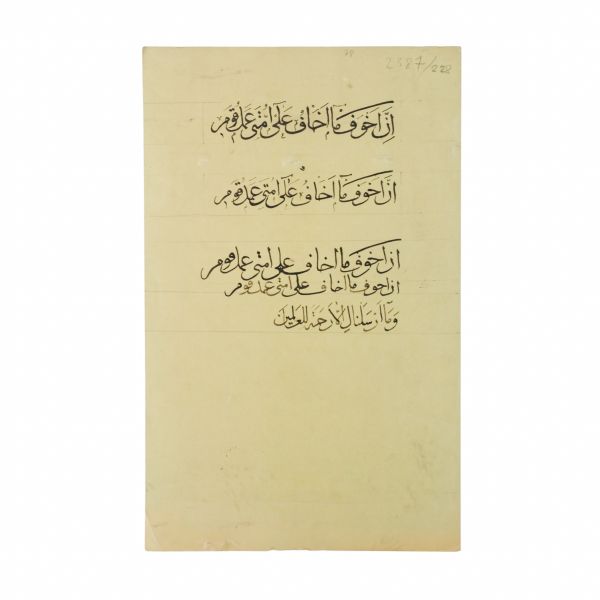 78 2387/228
اِنَّ اَخوَفَ مَآ اَخَافُ عَلٰى اُمَّتى عَمَلُ قَومِ
انَّ اخوفَ مَآ اَخَافُ عَلٰى امتى عَمَلُ قَوم
ان اخوف ما اخاف على امتى عمل قوم
ان اخوف ما اخاف على امتى عمل قوم
وَمَآ اَرسَلنَاكَ اِلَّا رَحمَةً لِلعَالَمينَ